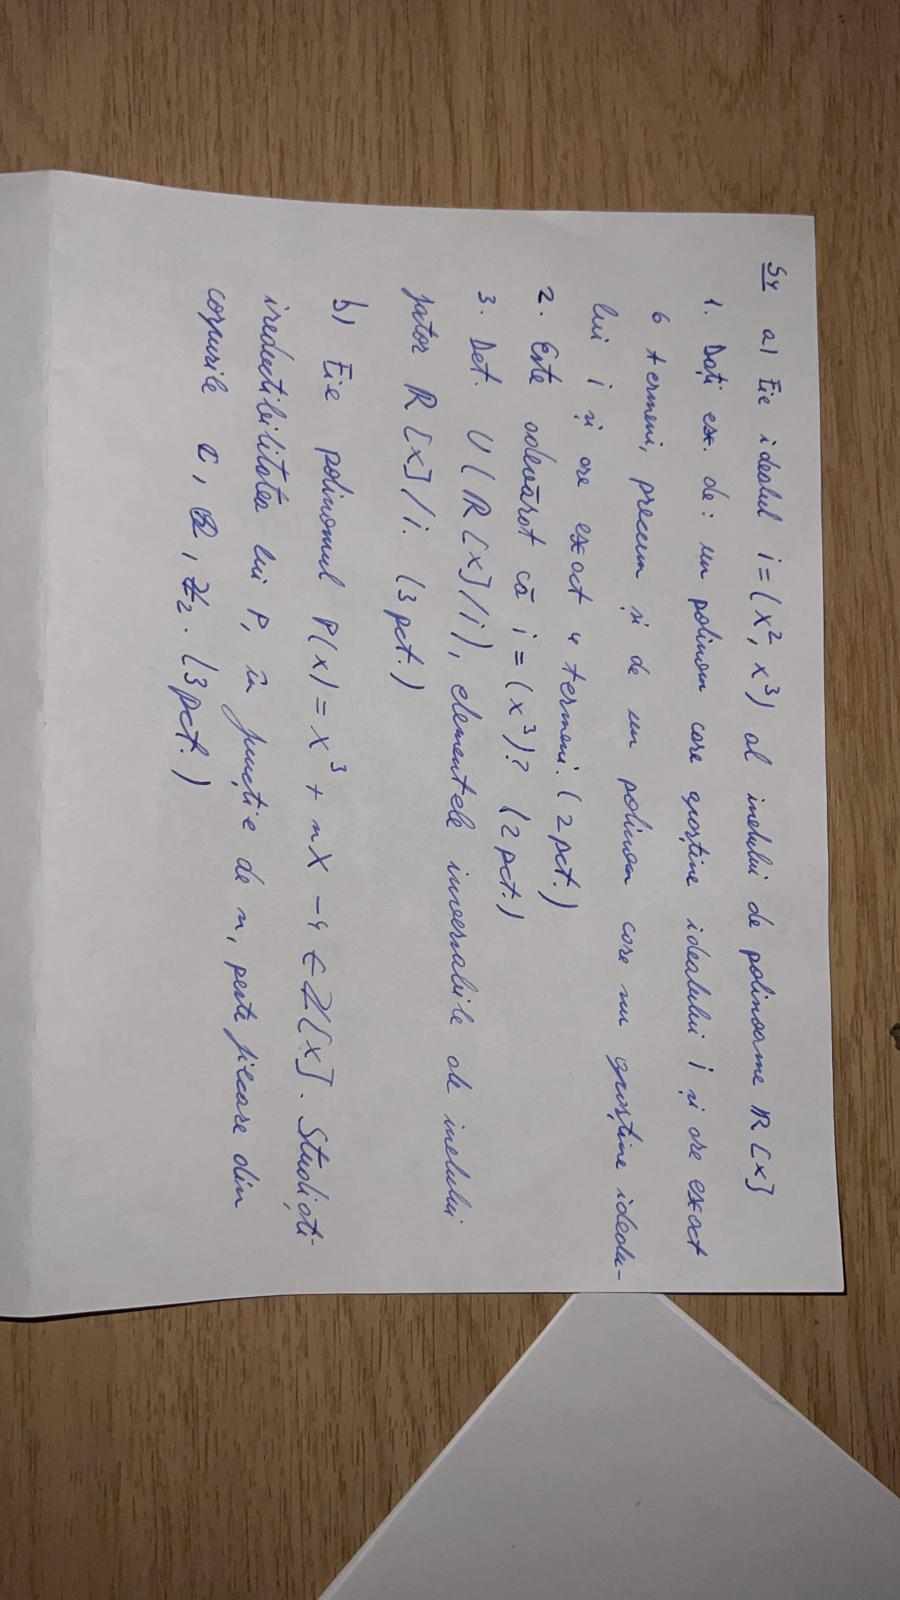 S4 a) Fie idealul i = (x², x³) al inelului de polinoame ℝ[x]
1. Dați ex. de: un polinom care aparține idealului i și are exact
6 termeni, precum și de un polinom care nu aparține idealu-
lui i și are exact 4 termeni. (2 pct.)
2. Este adevărat că i = (x³)? (2 pct.)
3. Det. U(ℝ[x]/i), elementele inversabile ale inelului
fator ℝ[x]/i. (3 pct.)
b) Fie polinomul P(x) = X³ + nX - 4 ∈ ℤ[x]. Studiați
ireductibilitatea lui P, în funcție de n, peste fiecare din
corpurile ℂ, ℚ, ℤ₂. (3 pct.)